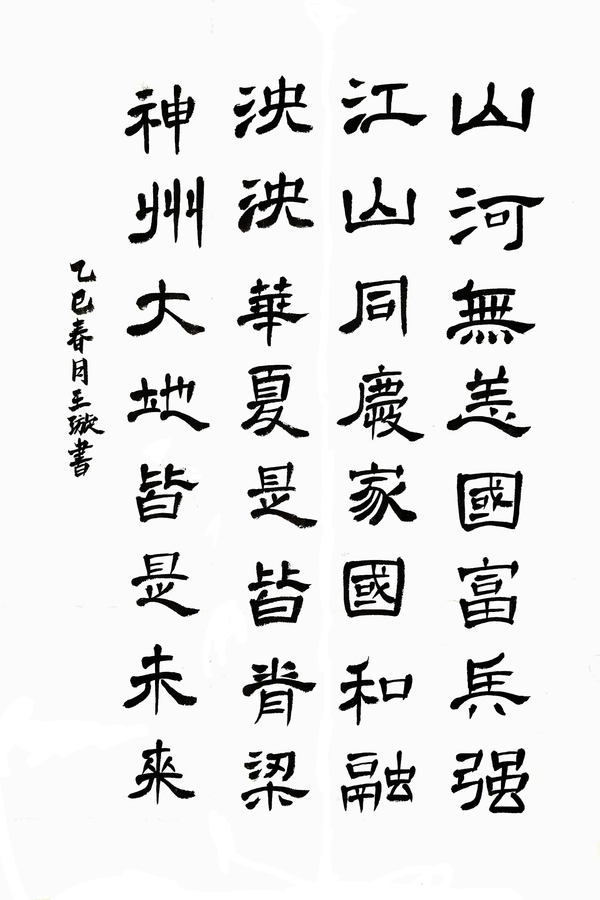 山河無恙國富兵强
江山同慶家國和融
泱泱華夏是皆脊梁
神州大地皆是未来
乙巳春月王璇書